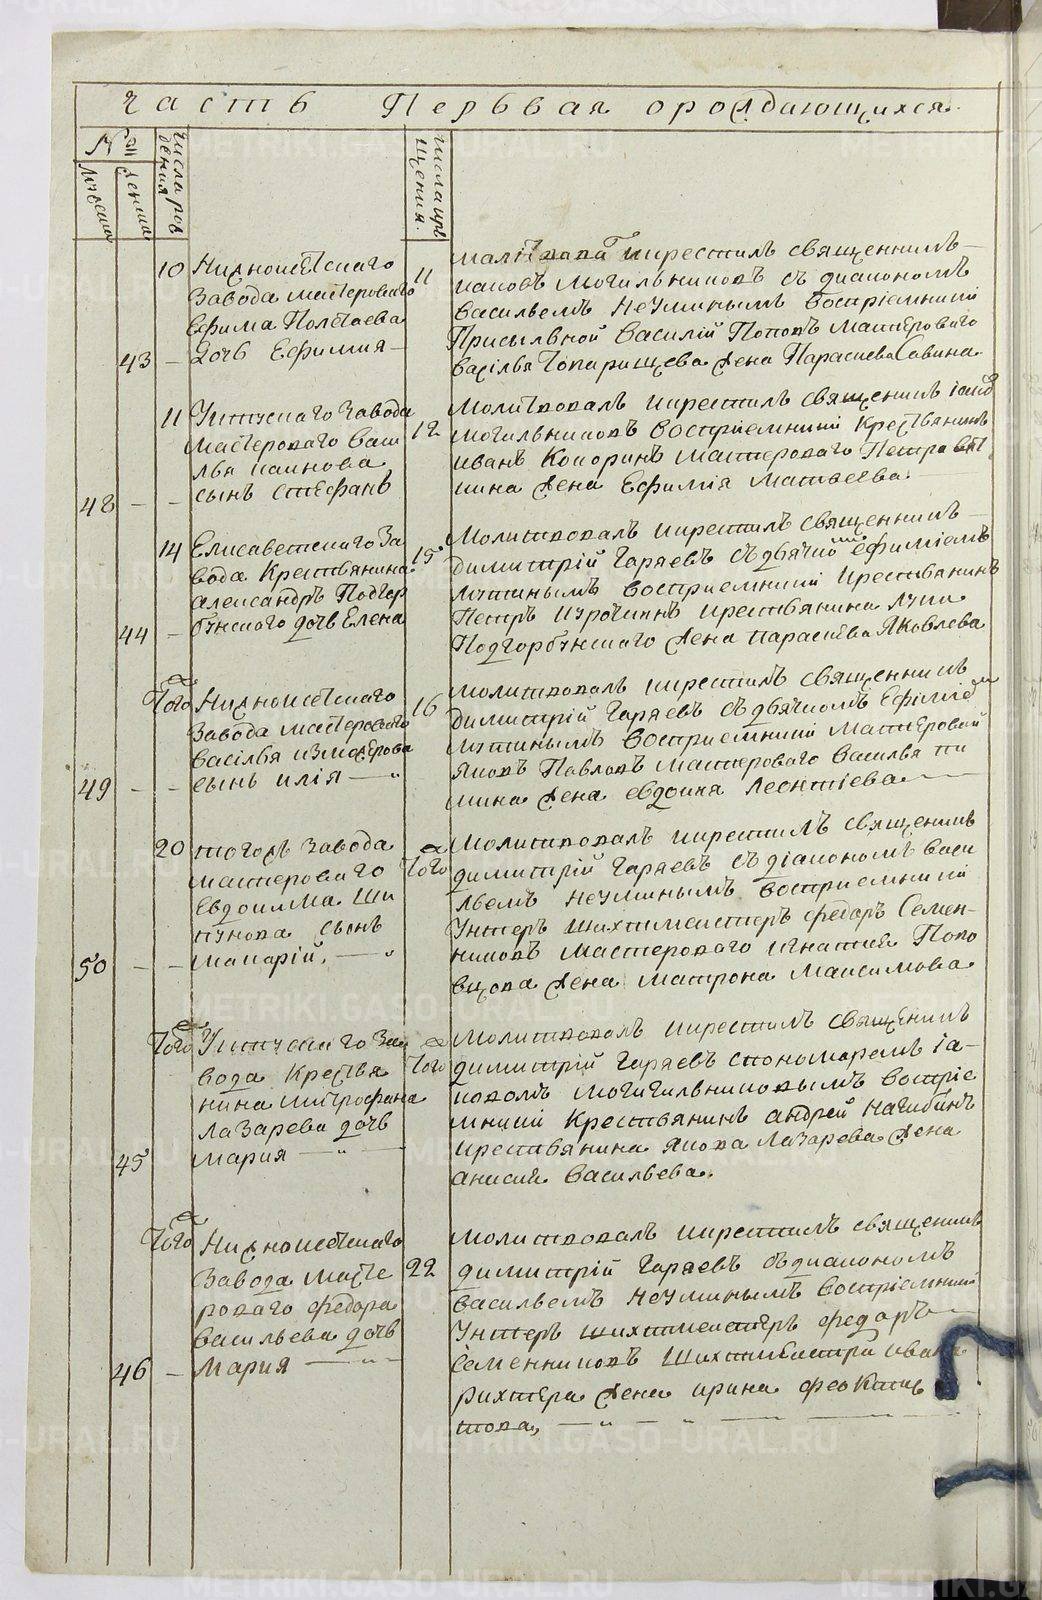 Часть Перьвая ораждающихся.
№ ш
мужеска
женска
числа рож
дения
числа кре
щения.
10
Нижноисетскаго
Завода мастероваго
Ефима Полетаева
43 — дочь Евфимия —
11
молитвовал и крестилъ священникъ —
иаковъ Могильниковъ съ диакономъ
Васильемъ Неуминымъ Восприемники
Присыльной Василий Поповъ мастероваго
Василья Топарищева жена Параскева Савина.
11
Уктускаго Завода
мастероваго Васи
лья
48 — — сынъ Стефанъ
12
Молитвовалъ и крестилъ священник иаков
могильниковъ восприемники Крестьянинъ
иванъ Копоринъ мастероваго Петра
жена Евфимия Матвеева.
14
Елисаветскаго За
вода Крестьянина
Александръ Подгор
бунскаго дочь Елена
44 —
15
Молитвовалъ и крестилъ священникъ —
димитрий Гаряевъ съ дьячкомъ ефимиемъ
восприемники крестьянинъ
Петръ крестьянина Луки
Подгорбунскаго жена параскева Яковлева
Того
Нижноисетскаго
Завода мастероваго
василья измодерова
49 — — сынъ илия —
16
Молитвовалъ и крестилъ священникъ
димитрий Гаряевъ съ дьячкомъ Ефимие
восприемники мастеровой
Яковъ Павловъ мастероваго василья ни
жена евдокия Леонтиева
20
тогожъ Завода
мастероваго
Евдокима Ши
пунова сынъ
50 — — макарий. —
Того
Молитвовалъ и крестилъ священникъ
димитрий Гаряевъ съ диакономъ васи
льемъ неуминымъ восприемники
Унтеръ шихтмейстеръ федоръ Семен-
никовъ мастероваго игнатия Попо
вцова жена матрона максимова
Того
Уктускаго За
вода Крестья
нина митрофана
Лазарева дочь
45 мария —
Того
Молитвовалъ и крестилъ священникъ
димитрий Гаряевъ спономаремъ иа-
ковомъ могигильниковымъ восприе
мники Крестьянинъ андрей нагибинъ
крестьянина якова лазарева жена
анисия васильева.
Того
Нижноисетскаго
Завода масте
роваго федора
васильева дочь
46 — мария —
22
Молитвовалъ и крестилъ священникъ
димитрий Гаряевъ съ диакономъ
васильемъ неуминымъ восприемники
Унтеръ шихтмейстеръ федоръ —
Семенниковъ Шихтмейстра ивана
рихтера жена ирина феоктис
това, —
METRIKI.GASO-URAL.RU